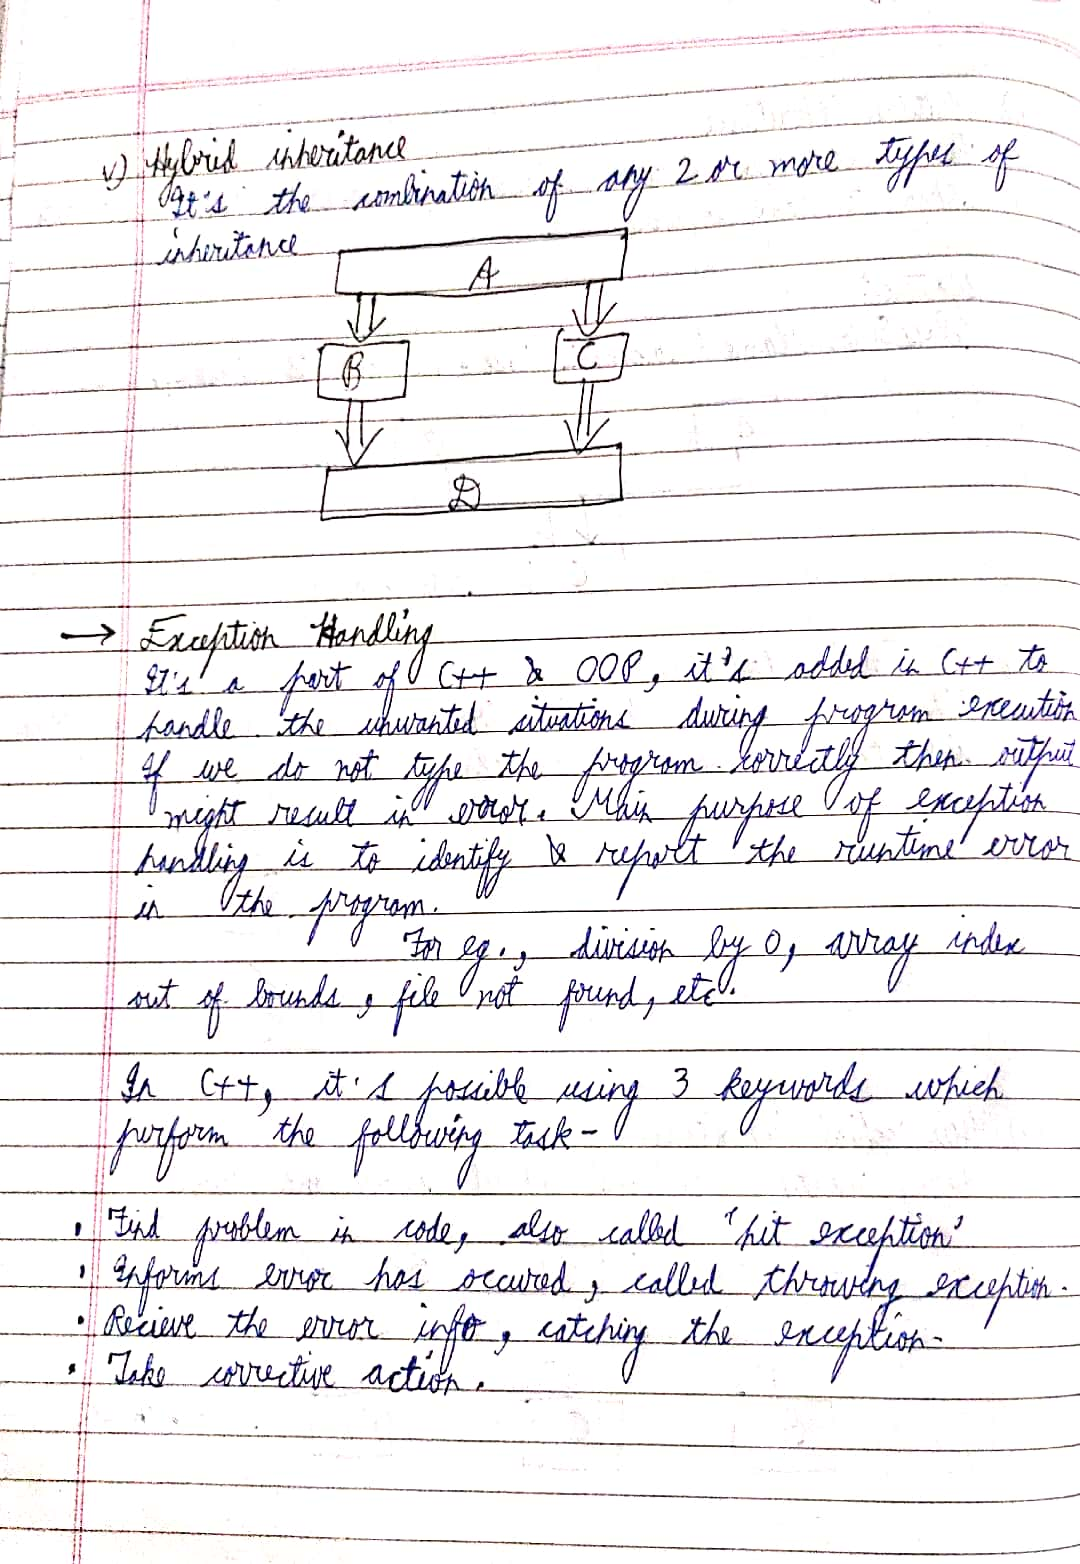 v) Hybrid inheritance
It's the combination of any 2 or more types of
inheritance
A
B
C
D
→ Exception Handling
It's a part of C++ & OOP, it's added in C++ to
handle the unwanted situations during program execution
If we do not type the program correctly then output
might result in error. Main purpose of exception
handling is to identify & report the runtime error
in the program.
For eg., division by 0, array index
out of bounds, file not found, etc.
In C++, it's possible using 3 keywords which
perform the following task -
• Find problem in code, also called 'hit exception'
• Informs error has occured, called throwing exception.
• Recieve the error info, catching the exception-
• Take corrective action.